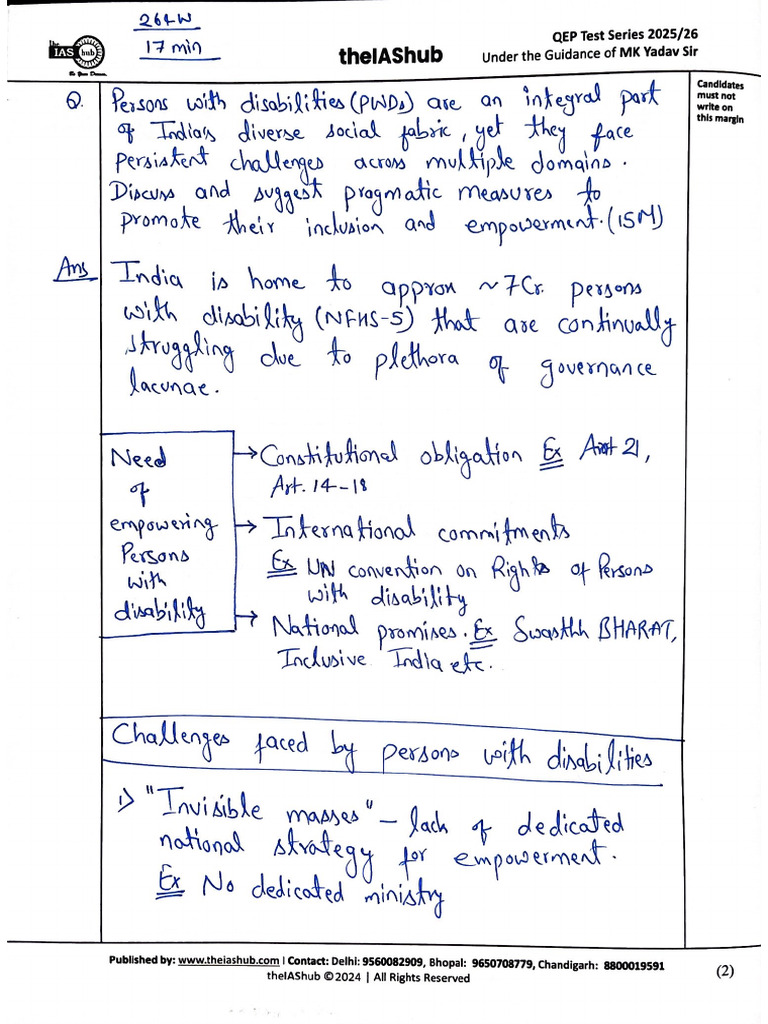 264W
17 min
The
IAS hub
Be Your Dream.
theIAShub
QEP Test Series 2025/26
Under the Guidance of MK Yadav Sir
Candidates
must not
write on
this margin
Q. Persons with disabilities (PWDs) are an integral part
of India's diverse social fabric, yet they face
persistent challenges across multiple domains.
Discuss and suggest pragmatic measures to
promote their inclusion and empowerment. (15M)
Ans India is home to approx ~7Cr. persons
with disability (NFHS-5) that are continually
struggling due to plethora of governance
lacunae.
Need
of
empowering
Persons
with
disability
→ Constitutional obligation Ex Art 21,
Art. 14-18
→ International commitments
Ex UN convention on Rights of Persons
with disability
→ National promises. Ex Swasthh BHARAT,
Inclusive India etc.
Challenges faced by persons with disabilities
1) "Invisible masses" – lack of dedicated
national strategy for empowerment.
Ex No dedicated ministry
Published by: www.theiashub.com | Contact: Delhi: 9560082909, Bhopal: 9650708779, Chandigarh: 8800019591
theIAShub ©2024 | All Rights Reserved
(2)